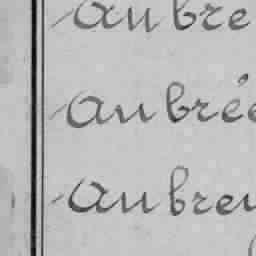 Aubre
Aubrée
Aubreu